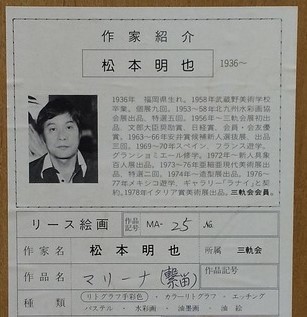 作家紹介
松本明也 1936～
1936年 福岡県生れ。1958年武蔵野美術学校
卒業。個展九回。1953～58年北九州水彩画協
会展出品、特選五回。1956年～三軌会展初出
品、文部大臣奨励賞、日経賞、会員・会友優
賞。1963～66年安井賞候補新人展選抜展、出品
三回。1969～70年スペイン、フランス遊学。
グランショミエール修学。1972年～新人具象
百人展出品。1973～76年亜細亜現代美術展出
品、特選一回。1974年～造型展出品。1976～
77年メキシコ遊学、ギャラリー「ラナイ」と契
約。1978年イタリア賞美術展出品。三軌会会員。
リース絵画 作品記号 MA-25 No.
作家名 松本明也 所属 三軌会
作品名 マリーナ 作品記番
種類 リトグラフ手彩色・カラーリトグラフ・エッチング
パステル・水彩画・油墨画・油絵